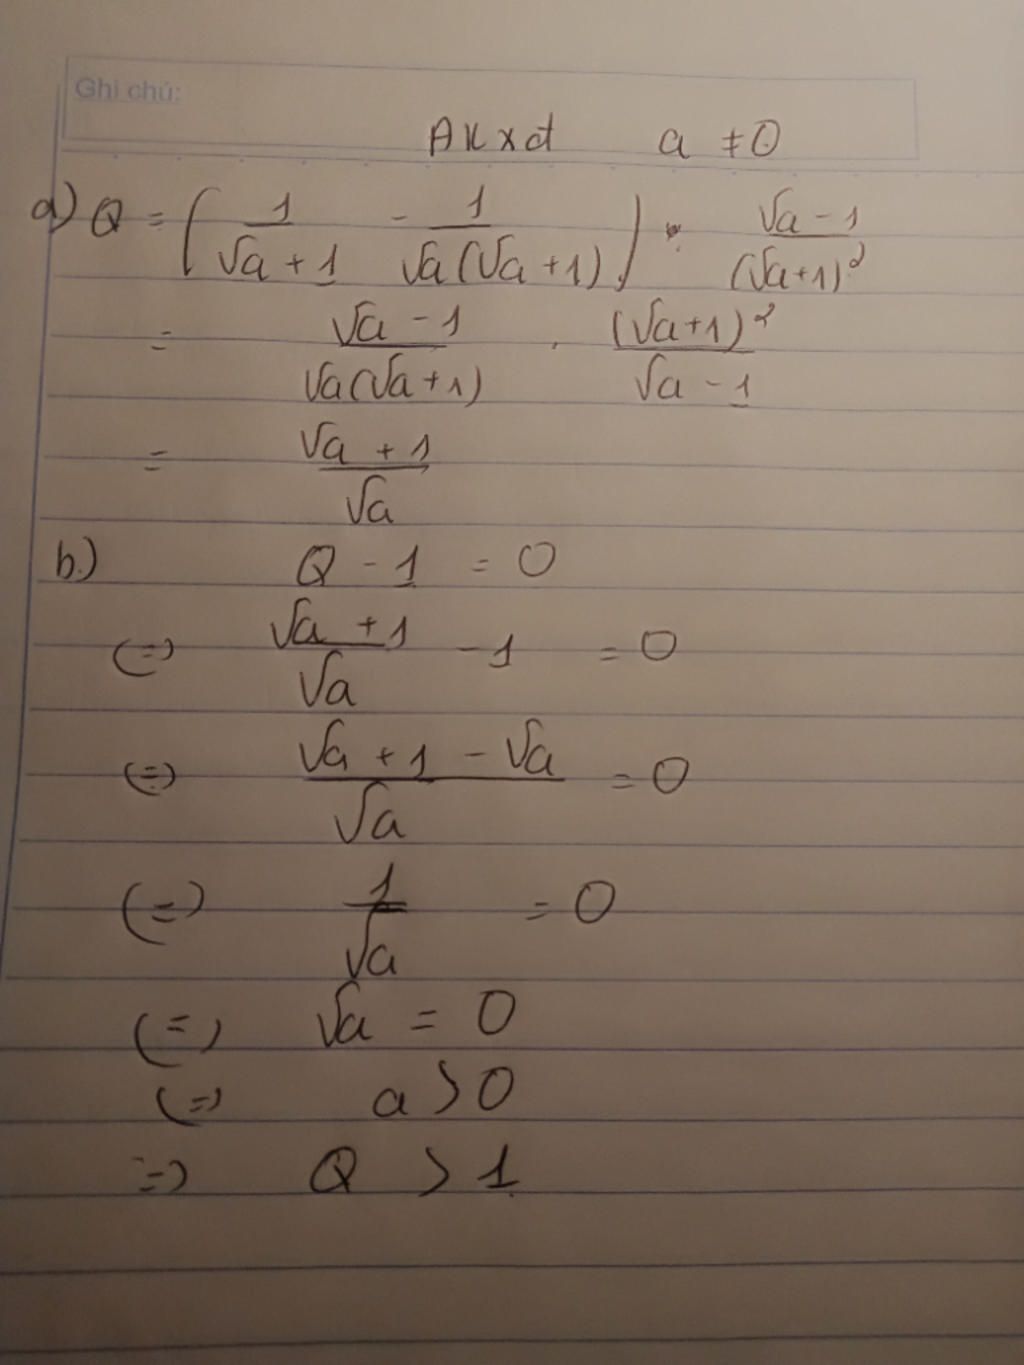 Ghi chú:
ĐKxđ a ≠ 0
a) Q = (1/(√a + 1) - 1/(√a(√a + 1))) : (√a - 1)/(√a+1)²
= (√a - 1)/(√a(√a + 1)) . (√a+1)²/(√a - 1)
= (√a + 1)/√a
b.) Q - 1 = 0
(=) (√a + 1)/√a - 1 = 0
(=) (√a + 1 - √a)/√a = 0
(=) 1/√a = 0
(=) √a = 0
(=) a > 0
=) Q > 1